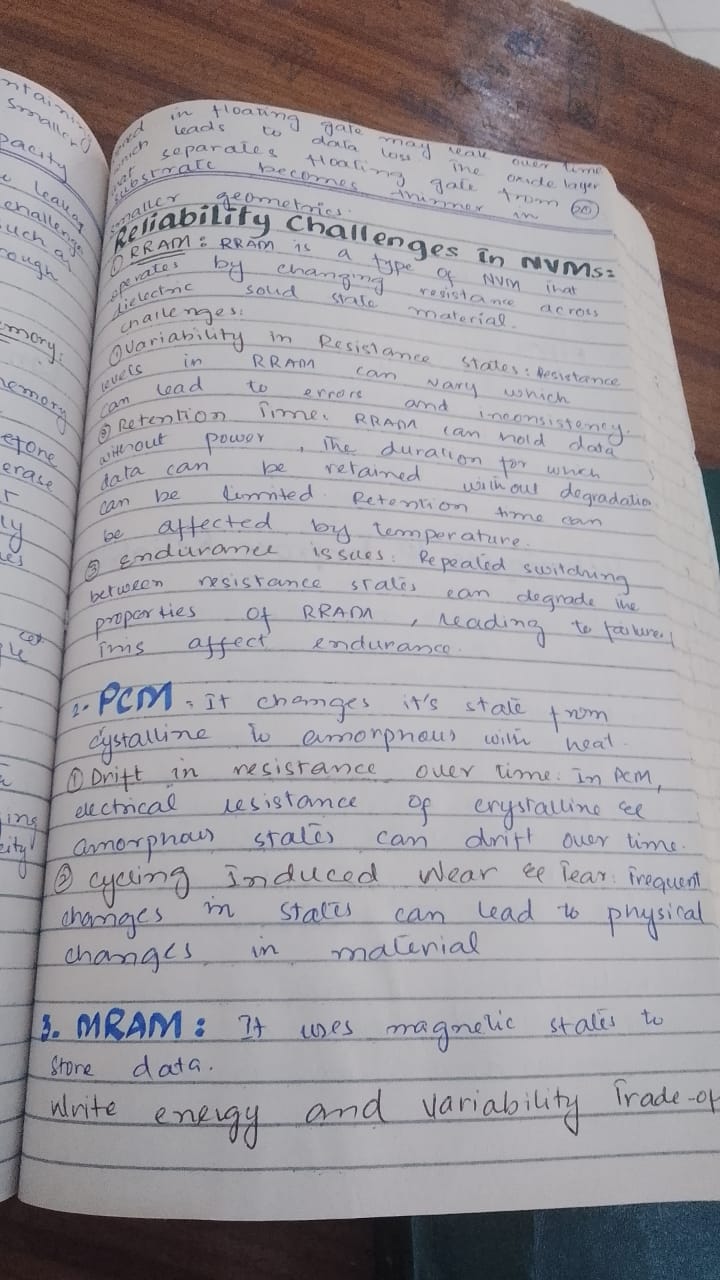 ntaining
smaller
pacity
e leakag
challenge
uch as
rough
mory:
memory
erase
ly
ing
city
in floating gate may leak over time
which leads to data loss The oxide layer
that separates floating gate from
substrate becomes thinner in
smaller geometries.
20
Reliability Challenges in NVMs:
① RRAM: RRAM is a type of NVM that
operates by changing resistance across
dielectric solid state material.
challenges:
① Variability in Resistance states: Resistance
levels in RRAM can vary which
can lead to errors and inconsistency.
② Retention Time: RRAM can hold data
without power, The duration for which
data can be retained without degradation
can be limited. Retention time can
be affected by temperature.
③ endurance issues: Repealed switching
between resistance states can degrade the
properties of RRAM, leading to failure,
This affect endurance.
2. PCM. It changes it's state from
cystalline to amorphous with heat.
① Drift in resistance over time: In PCM,
electrical resistance of crystalline &
amorphous states can drift over time.
② cycling induced wear & Tear: Frequent
changes in states can lead to physical
changes in material
3. MRAM: It uses magnetic states to
store data.
Write energy and variability Trade-of